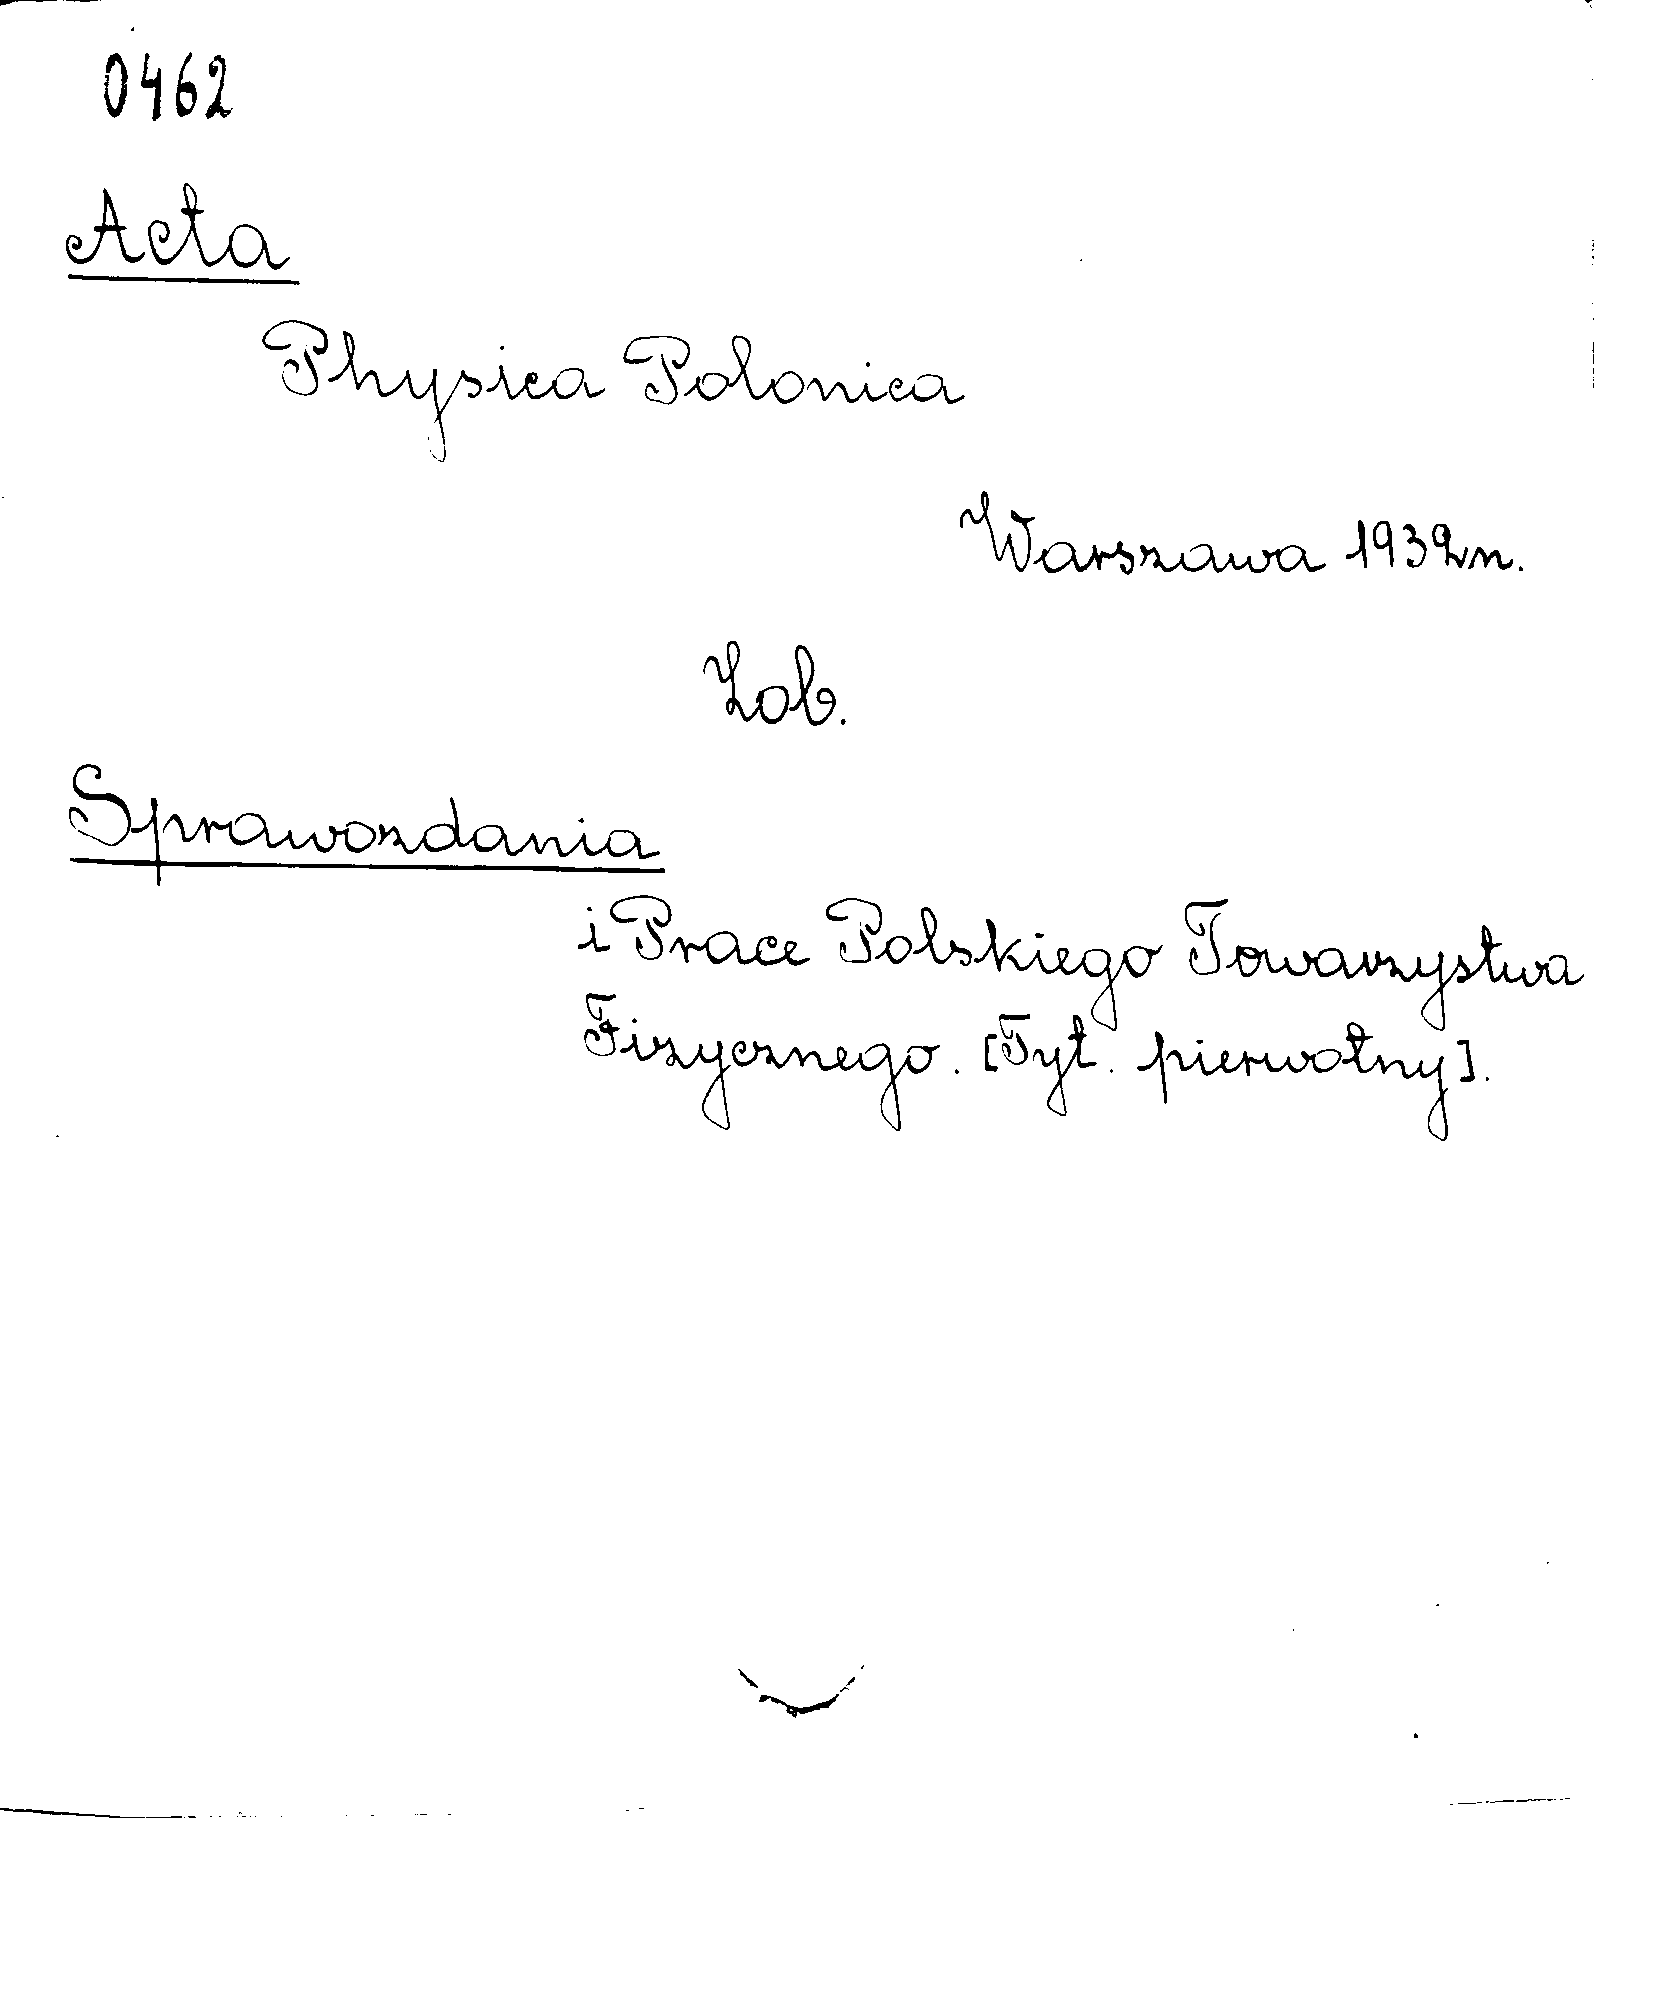 0462
Acta
Physica Polonica
Warszawa 1932 n.
Zob.
Sprawozdania
i Prace Polskiego Towarzystwa
Fizycznego. [Tyt. pierwotny].